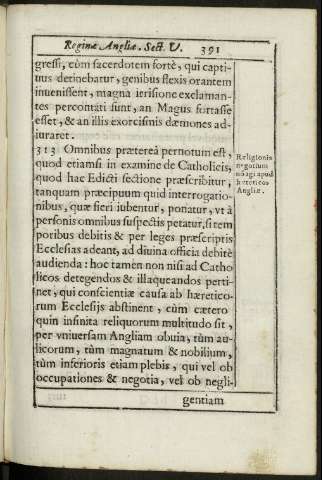 Reginæ Angliæ. Sect. V. 391
gressi, cùm sacerdotem fortè, qui capti-
uus detinebatur, genibus flexis orantem
inuenissent, magna irrisione exclaman-
tes percontati sunt, an Magus fortasse
esset, & an illis exorcismis dæmones ad-
iuraret.
313 Omnibus prætereà pernotum est,
quod etiamsi in examine de Catholicis,
quod hac Edicti sectione præscribitur,
tanquam præcipuum quid interrogatio-
nibus, quæ fieri iubentur, ponatur, vt à
personis omnibus suspectis petatur, si tem
poribus debitis & per leges præscriptis
Ecclesias adeant, ad diuina officia debitè
audienda: hoc tamen non nisi ad Catho
licos detegendos & illaqueandos perti-
net, qui conscientiæ causa ab hæretico-
rum Ecclesijs abstinent, cùm cætero
quin infinita reliquorum multitudo sit,
per vniuersam Angliam obuia, tùm au-
licorum, tùm magnatum & nobilium,
tùm inferioris etiam plebis, qui vel ob
occupationes & negotia, vel ob negli-
gentiam
Religionis
negotium
nõ agi apud
hæreticos
Angliæ.